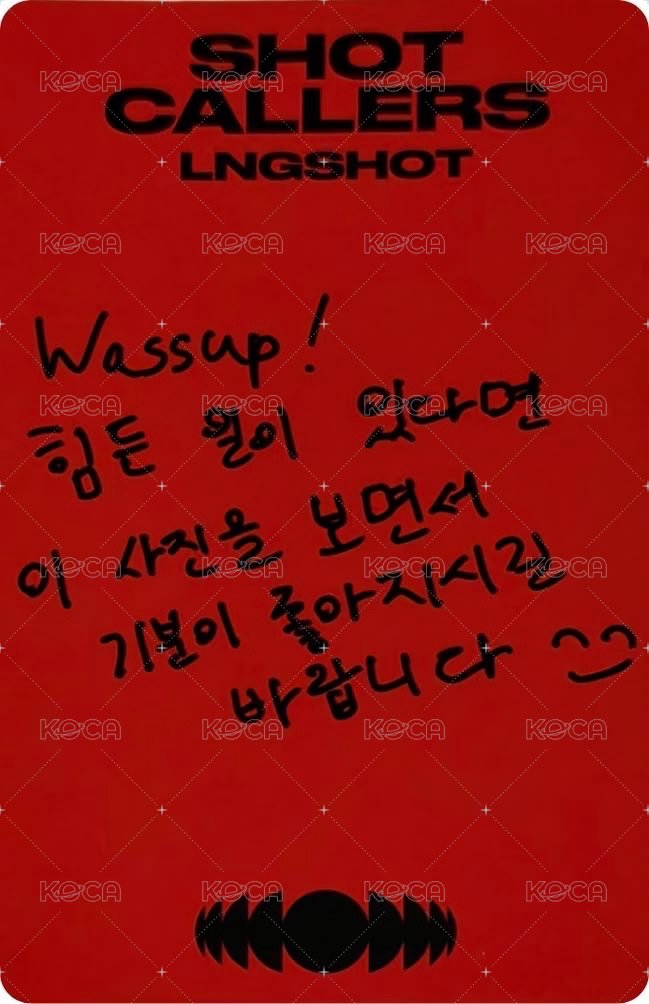 SHOT
CALLERS
LNGSHOT
Wassup!
힘든 일이 있다면
이 사진을 보면서
기분이 좋아지시길
바랍니다
KOCA